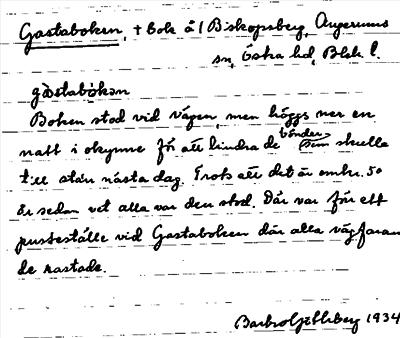 Gastaboken, + bok å / Biskopsberg, Augerums
sn, Östra hd, Blek. l.
gàstabo̊kən
Boken stod vid vägen, men höggs ner en
natt i okynne för att hindra de bönder som skulle
till stan nästa dag. Trots att det är omkr. 50
år sedan vet alla var den stod. Där var förr ett
pusteställe vid Gastaboken där alla vägfaran
de rastade.
Barbro 1934